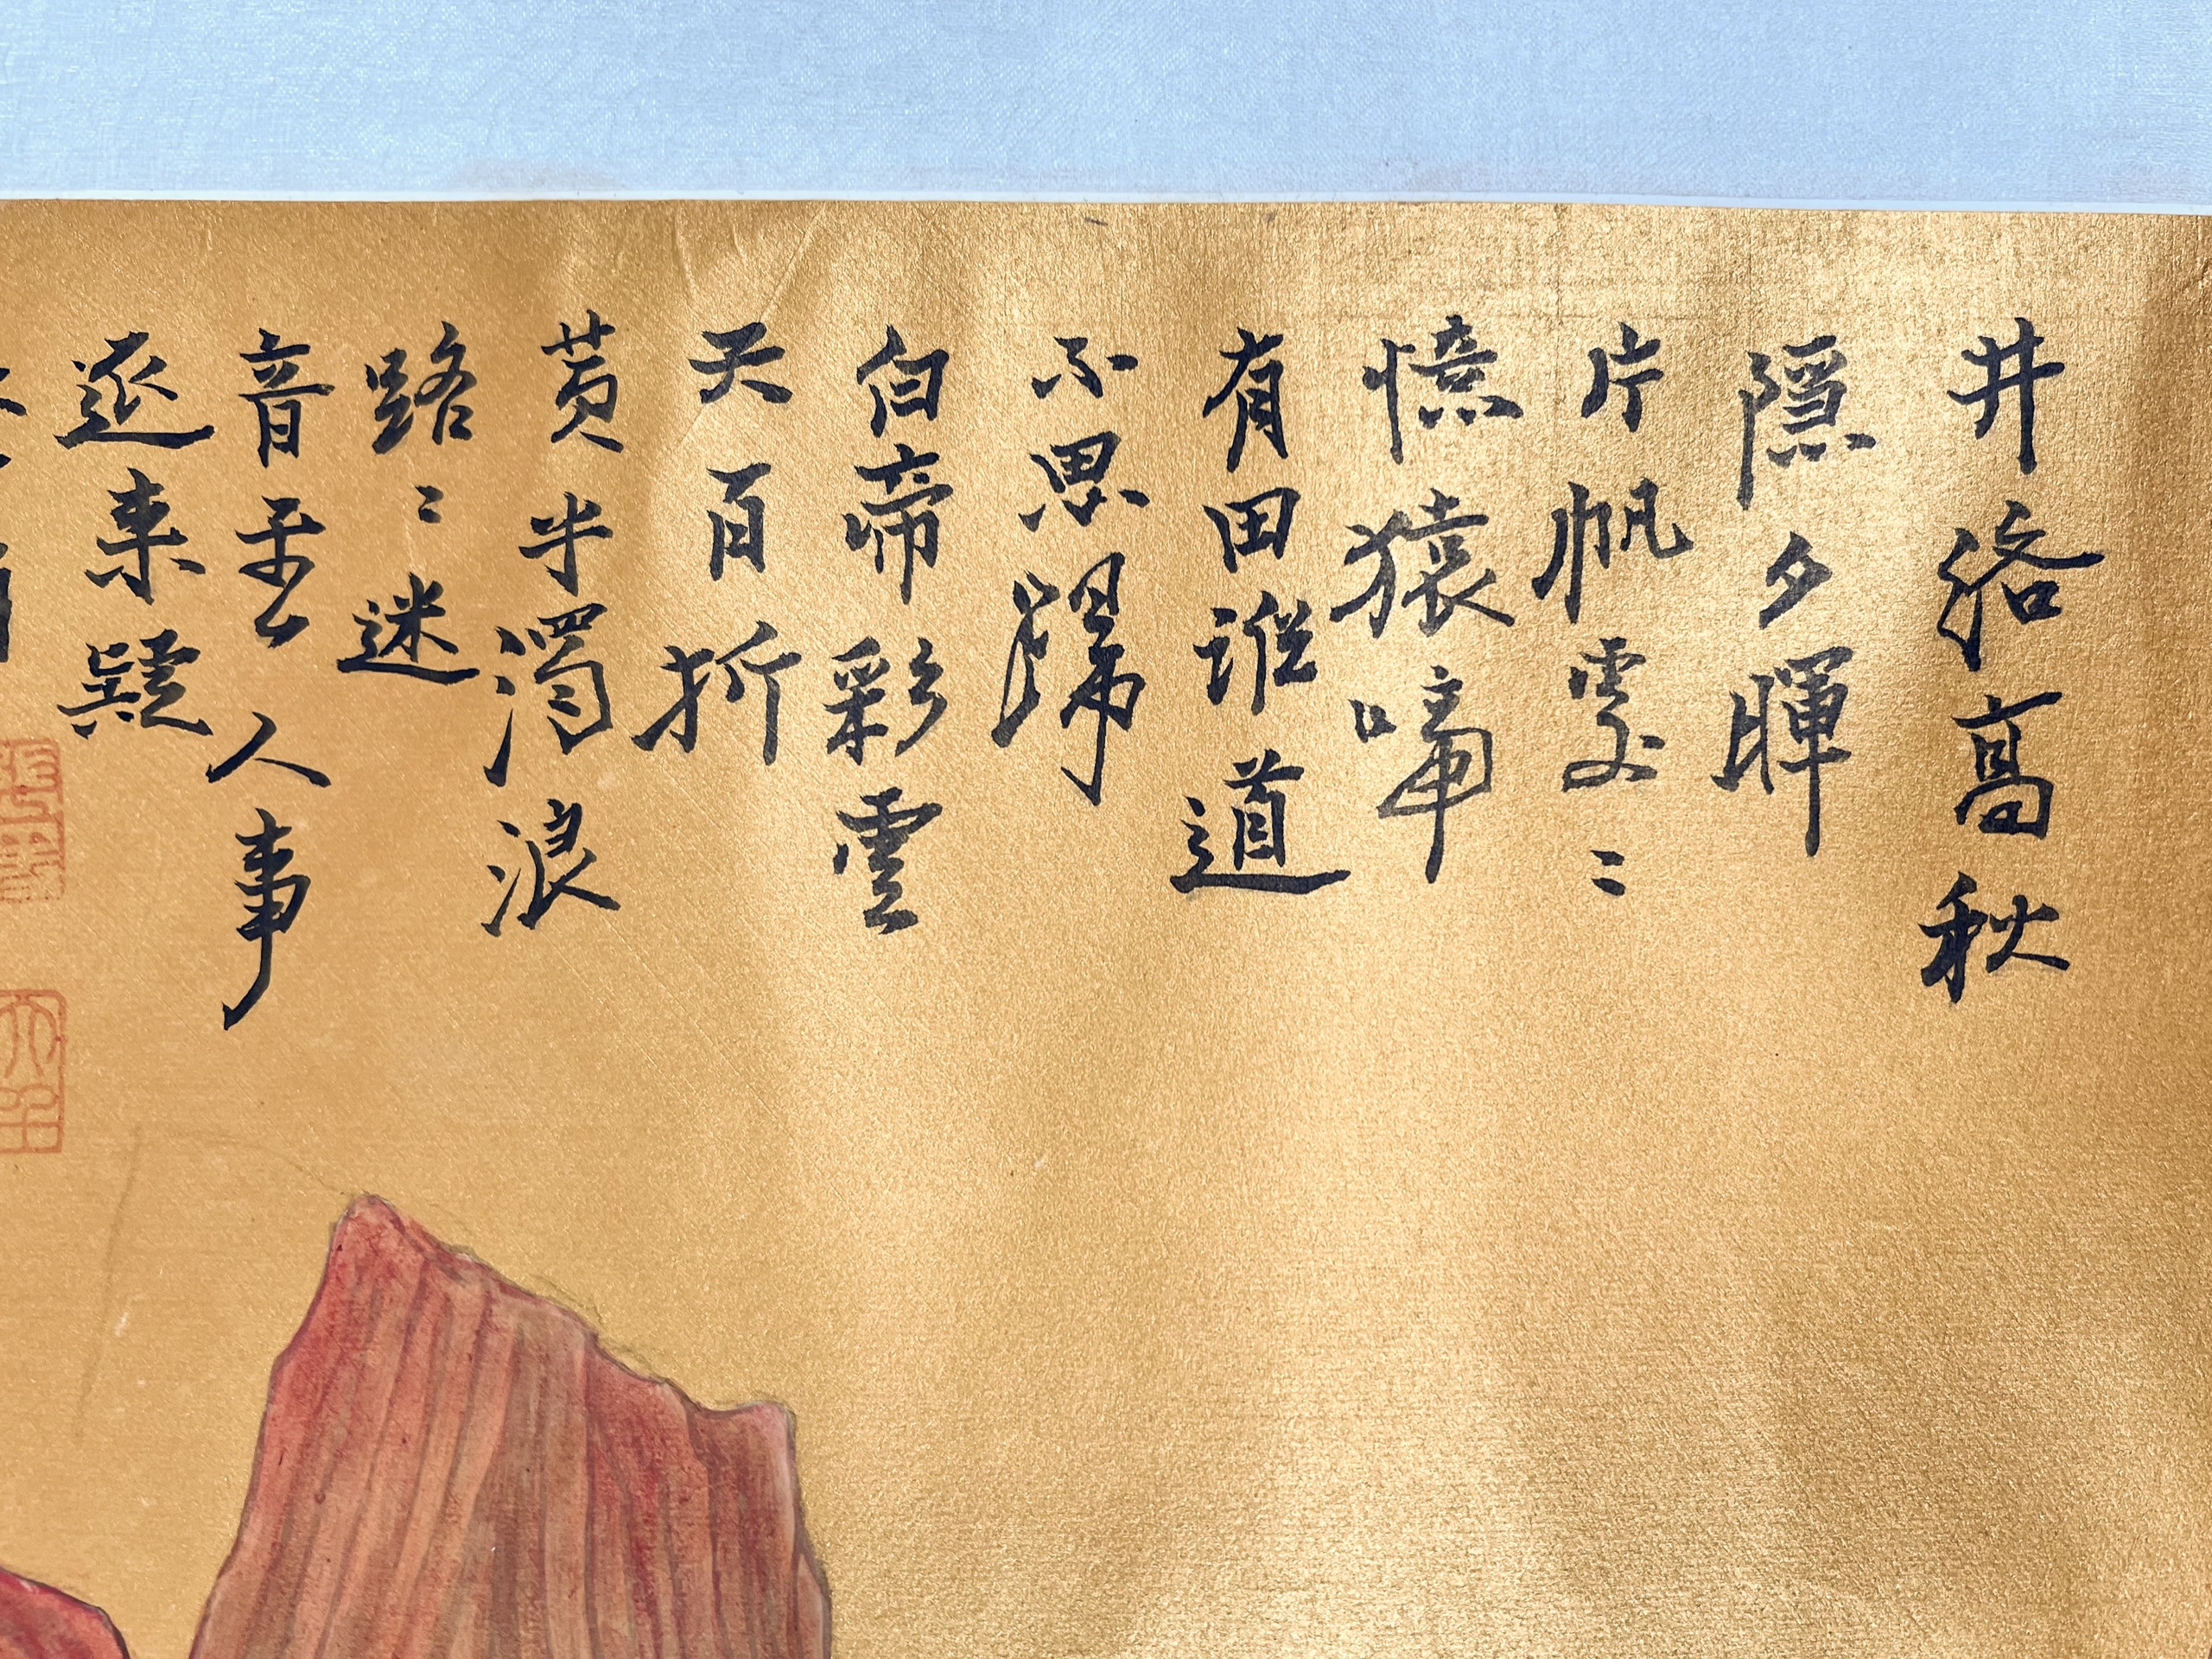 井絡高秋
隱夕暉
片帆處〻
憶猿啼
有田誰道
不思歸
白帝彩雲
天百折
黄牛濁浪
路〻迷
音人事
来疑